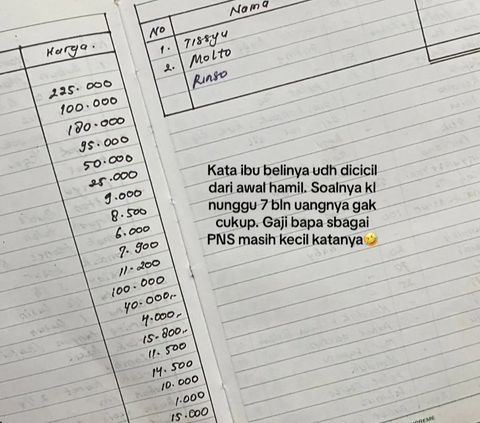 Harga.
225.000
100.000
180.000
95.000
50.000
25.000
9.000
8.500
6.000
7.900
11.200
100.000
40.000,-
4.000,-
15.800,-
11.500
14.500
10.000
1.000
15.000
No Nama
1. Tissyu
2. Molto
Rinso
Kata ibu belinya udh dicicil
dari awal hamil. Soalnya kl
nunggu 7 bln uangnya gak
cukup. Gaji bapa sbagai
PNS masih kecil katanya🤣